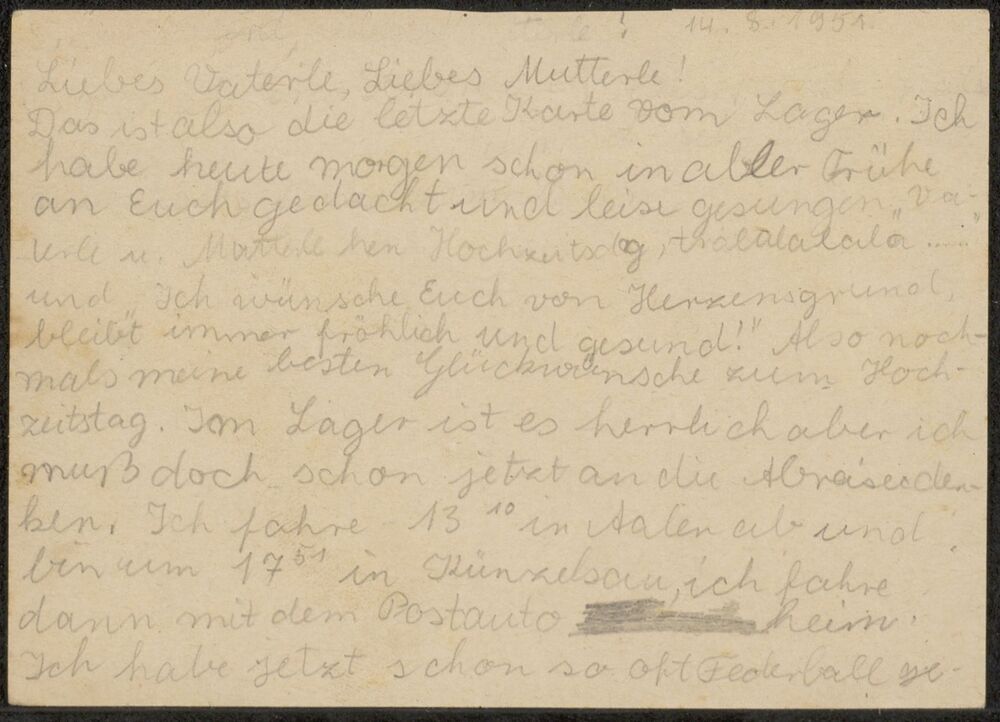 14. 8. 1951.
Liebes Vaterle, Liebes Mutterle!
Das ist also die letzte Karte vom Lager. Ich
habe heute morgen schon in aller Frühe
an Euch gedacht und leise gesungen „Va-
terle u. Mutterle hen Hochzeitsdg, tralalalala ......"
und „Ich wünsche Euch von Herzensgrund,
bleibt immer fröhlich und gesund!" Also noch-
mals meine besten Glückwünsche zum Hoch-
zeitstag. Im Lager ist es herrlich aber ich
muß doch schon jetzt an die Abreise den-
ken. Ich fahre 13 10 in Aalen ab und
bin um 17 51 in Künzelsau, ich fahre
dann mit dem Postauto heim.
Ich habe jetzt schon so oft Federball ge-